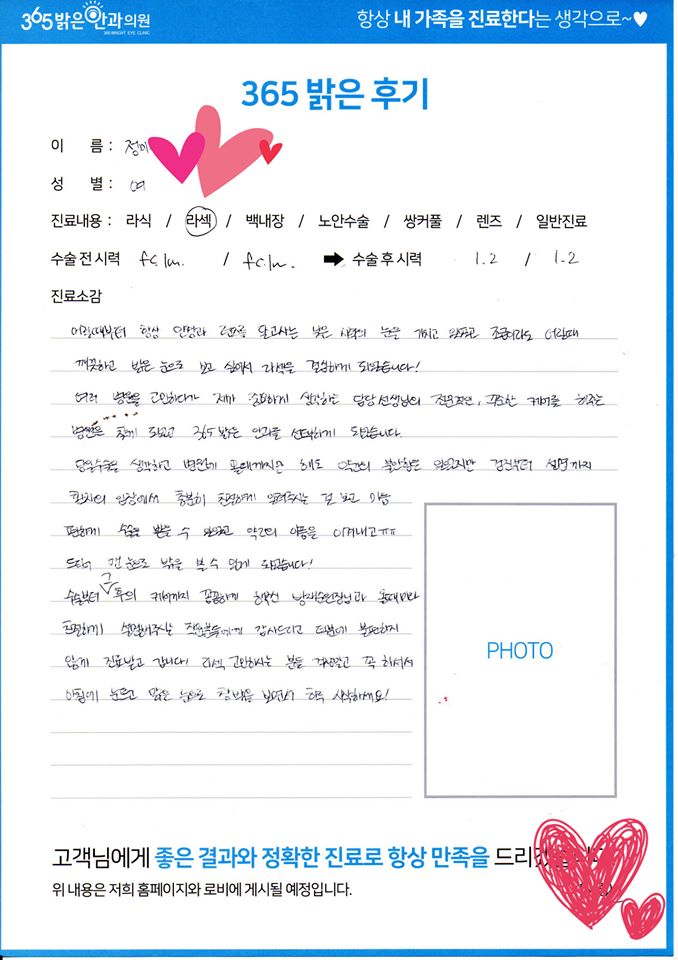 365밝은안과의원
365 BRIGHT EYE CLINIC
항상 내 가족을 진료한다는 생각으로~♥
365 밝은 후기
이 름 : 정미
성 별 : 여
진료내용 : 라식 / 라섹 / 백내장 / 노안수술 / 쌍커풀 / 렌즈 / 일반진료
수술 전 시력 f.c/m. / f.c/m. ➡ 수술 후 시력 1.2 / 1.2
진료소감
어릴때부터 항상 안경과 렌즈를 달고사는 낮은 시력의 눈을 가지고 있었고 조금이라도 어릴때
깨끗하고 밝은 눈으로 보고 싶어서 라섹을 결심하게 되었습니다!
여러 병원을 고민하다가 제가 중요하게 생각하는 담당선생님의 전문적인, 꼼꼼한 케어를 해주는
병원을 찾게 되었고 365 밝은 안과를 선택하게 되었습니다.
당일수술을 생각하고 병원에 올때까지만 해도 약간의 불안함은 있었지만 검진부터 설명까지
환자의 입장에서 충분히 친절하게 알려주시는 걸 보고 마음
편하게 수술을 받을 수 있었고 약간의 아픔을 이겨내고ㅠㅠ
드디어 맨눈으로 밖을 볼 수 있게 되었습니다!
수술부터 그 후의 케어까지 꼼꼼하게 해주신 원장님과 올때마다
친절하게 설명해주시는 직원분들에게 감사드리고 덕분에 불편하지
않게 진료받고 갑니다! 라섹 고민하시는 분들 걱정말고 꼭 하셔서
아침에 눈뜨고 맑은 눈으로 창밖을 보면서 하루 시작하세요!
PHOTO
고객님에게 좋은 결과와 정확한 진료로 항상 만족을 드리겠습니다
위 내용은 저희 홈페이지와 로비에 게시될 예정입니다.